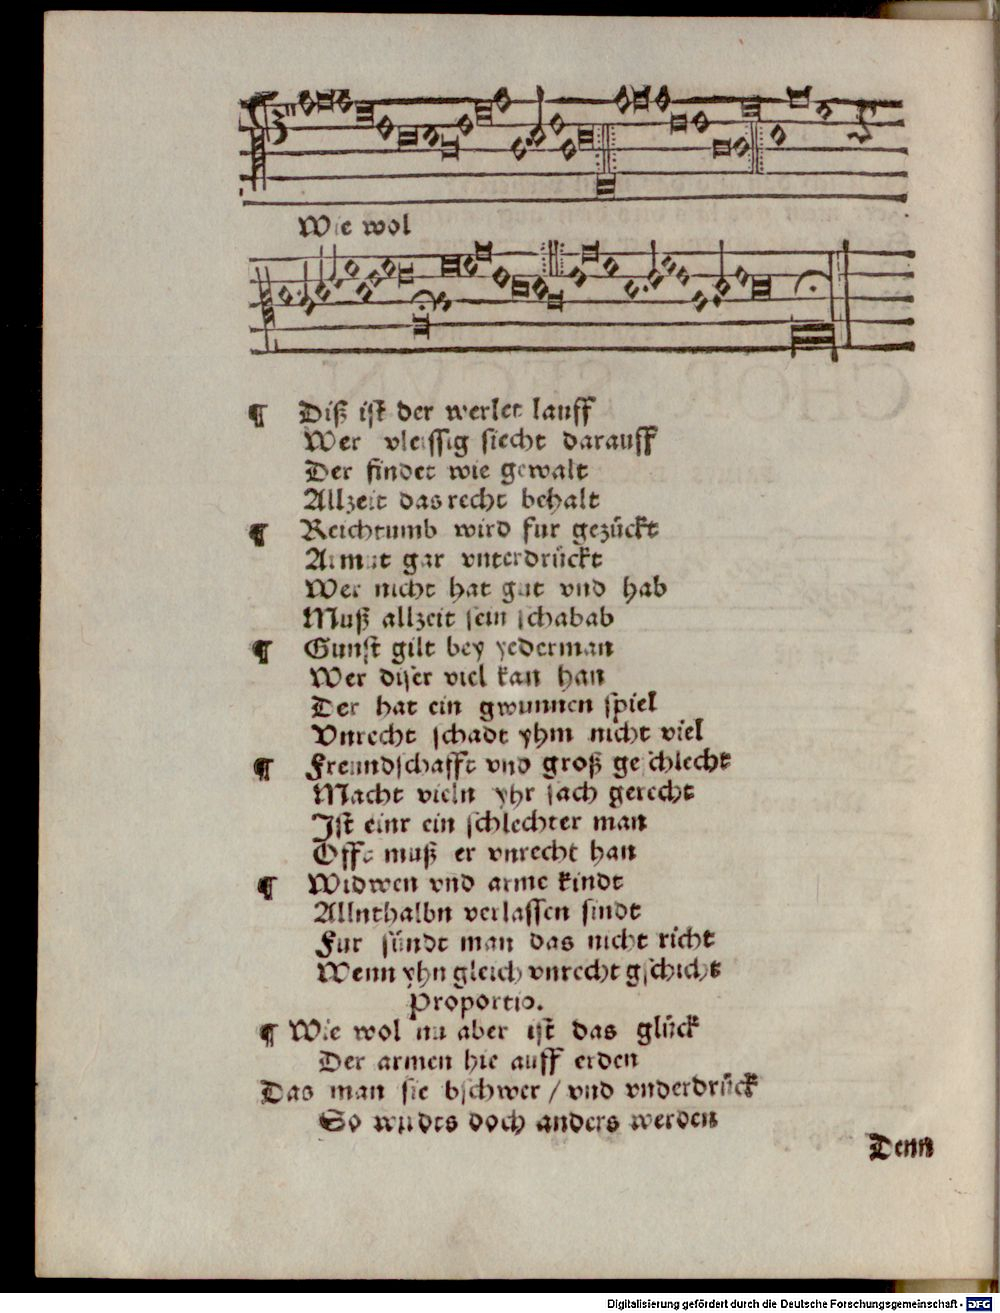 Wie wol
¶ Diß ist der werlet lauff
Wer vleissig siecht darauff
Der findet wie gewalt
Allzeit das recht behalt
¶ Reichtumb wird fur gezückt
Armut gar vnterdrückt
Wer nicht hat gut vnd hab
Muß allzeit sein schabab
¶ Gunst gilt bey yederman
Wer diser viel kan han
Der hat ein gwunnen spiel
Vnrecht schadt yhm nicht viel
¶ Freundschafft vnd groß geschlecht
Macht vieln yhr sach gerecht
Ist einr ein schlechter man
Offt muß er vnrecht han
¶ Widwen vnd arme kindt
Allnthalbn verlassen sindt
Fur sündt man das nicht richt
Wenn yhn gleich vnrecht gschicht
Proportio.
¶ Wie wol nu aber ist das glück
Der armen hie auff erden
Das man sie bschwer / vnd vnderdrück
So wurdes doch anders werden
Denn
Digitalisierung gefördert durch die Deutsche Forschungsgemeinschaft - DFG